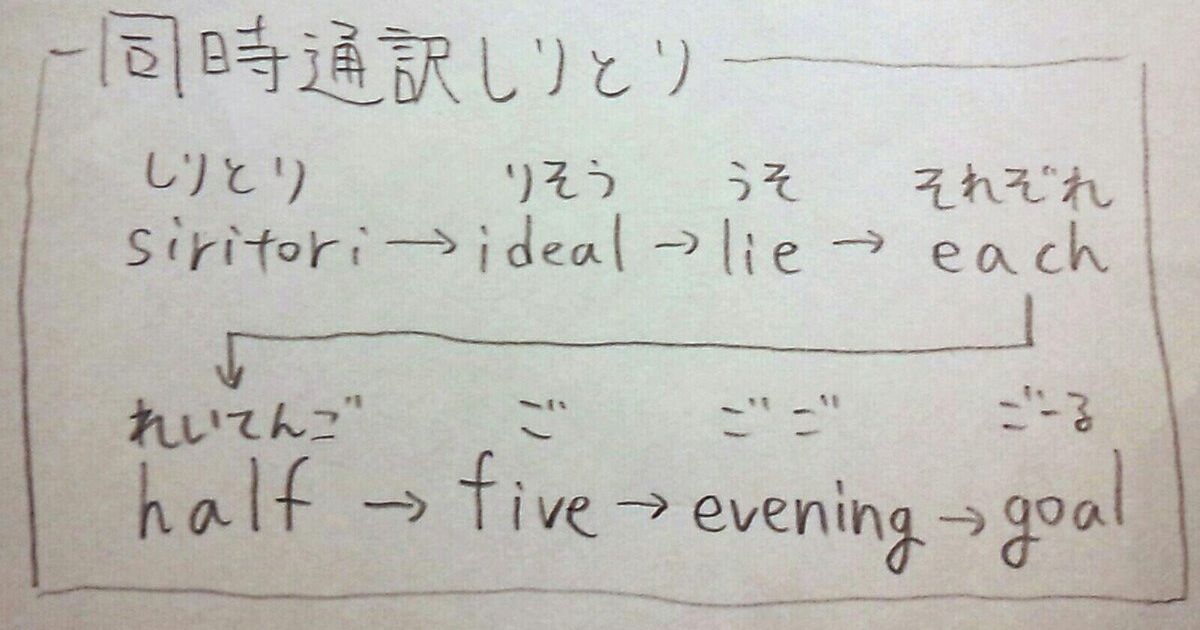 同時通訳しりとり
しりとり りそう うそ それぞれ
siritori → ideal → lie → each
れいてんご ご ごご ごーる
half → five → evening → goal